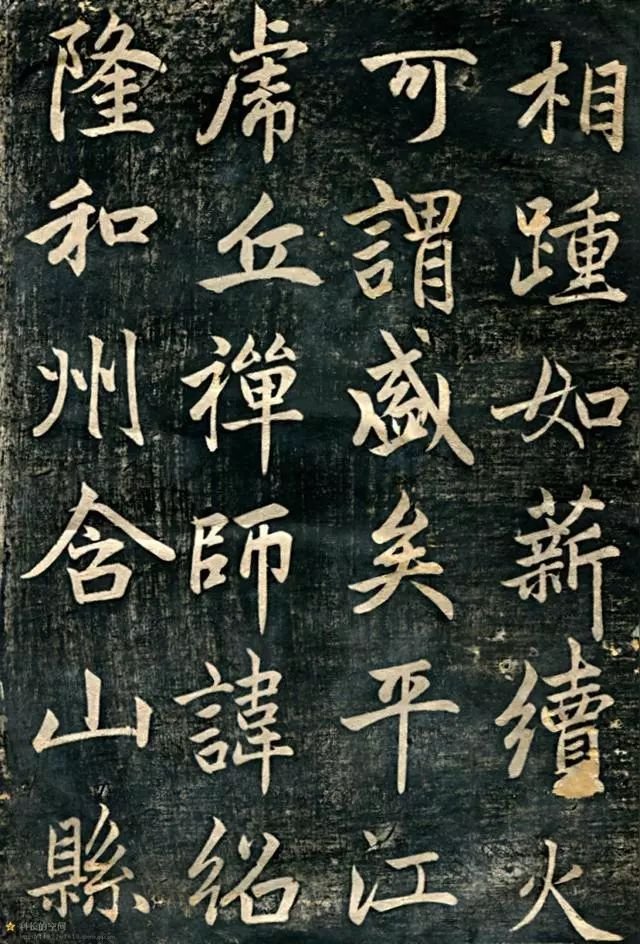 相踵如薪續火
可謂盛矣平江
虎丘禪師諱紹
隆和州含山縣
科长的空间